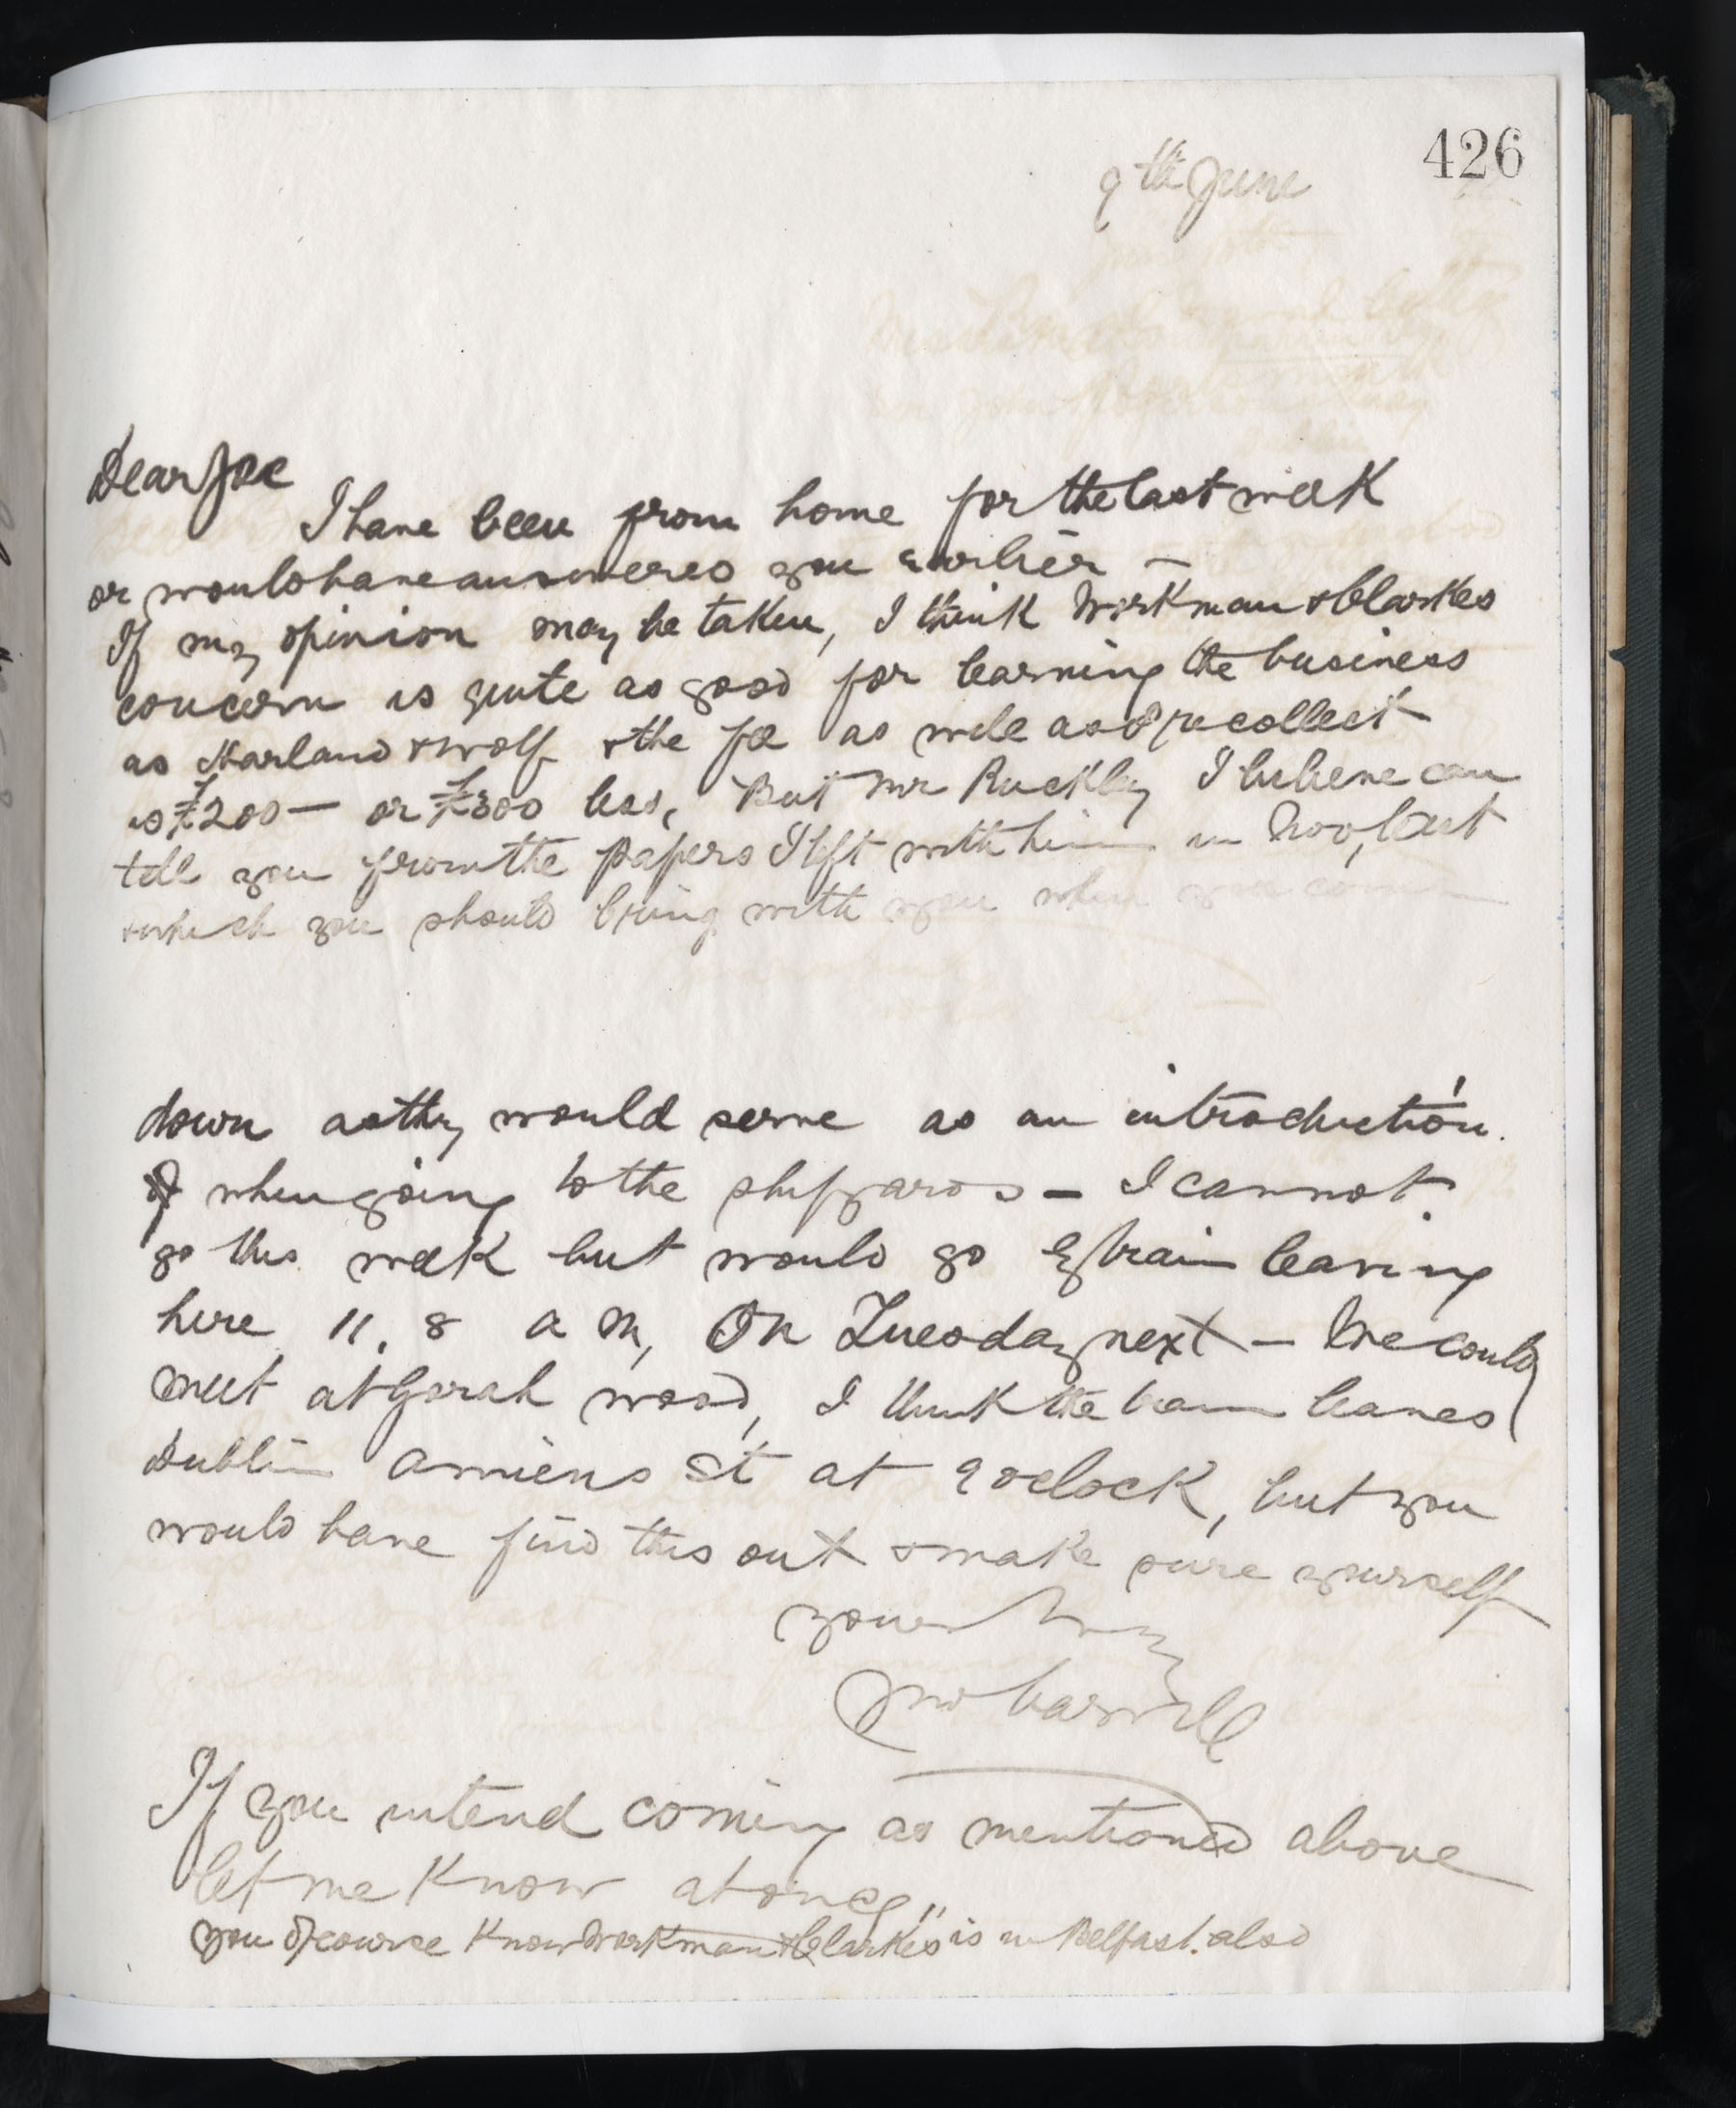 426
9th June
Dear Joe
I have been from home for the last week
or would have answered you earlier —
If my opinion may be taken, I think Workman & Clarkes
concern is quite as good for learning the business
as Harland & Wolf & the fee as well as I recollect
is £200 — or £300 less, But Mr Buckley I believe can
tell you from the papers I left with him in Nov, last
& which you should bring with you when you come
down as they would serve as an introduction.
when going to the shipyards — I cannot
go this week but would go by train leaving
here 11.8 a m, On Tuesday next — We could
meet at Gorah wood, I think the train leaves
Dublin Amiens St at 9 oclock, but you
would have find this out & make sure yourself
yours truly
Jno Carvill
If you intend coming as mentioned above
let me know at once,,
you of course know Workman & Clarkes is in Belfast also